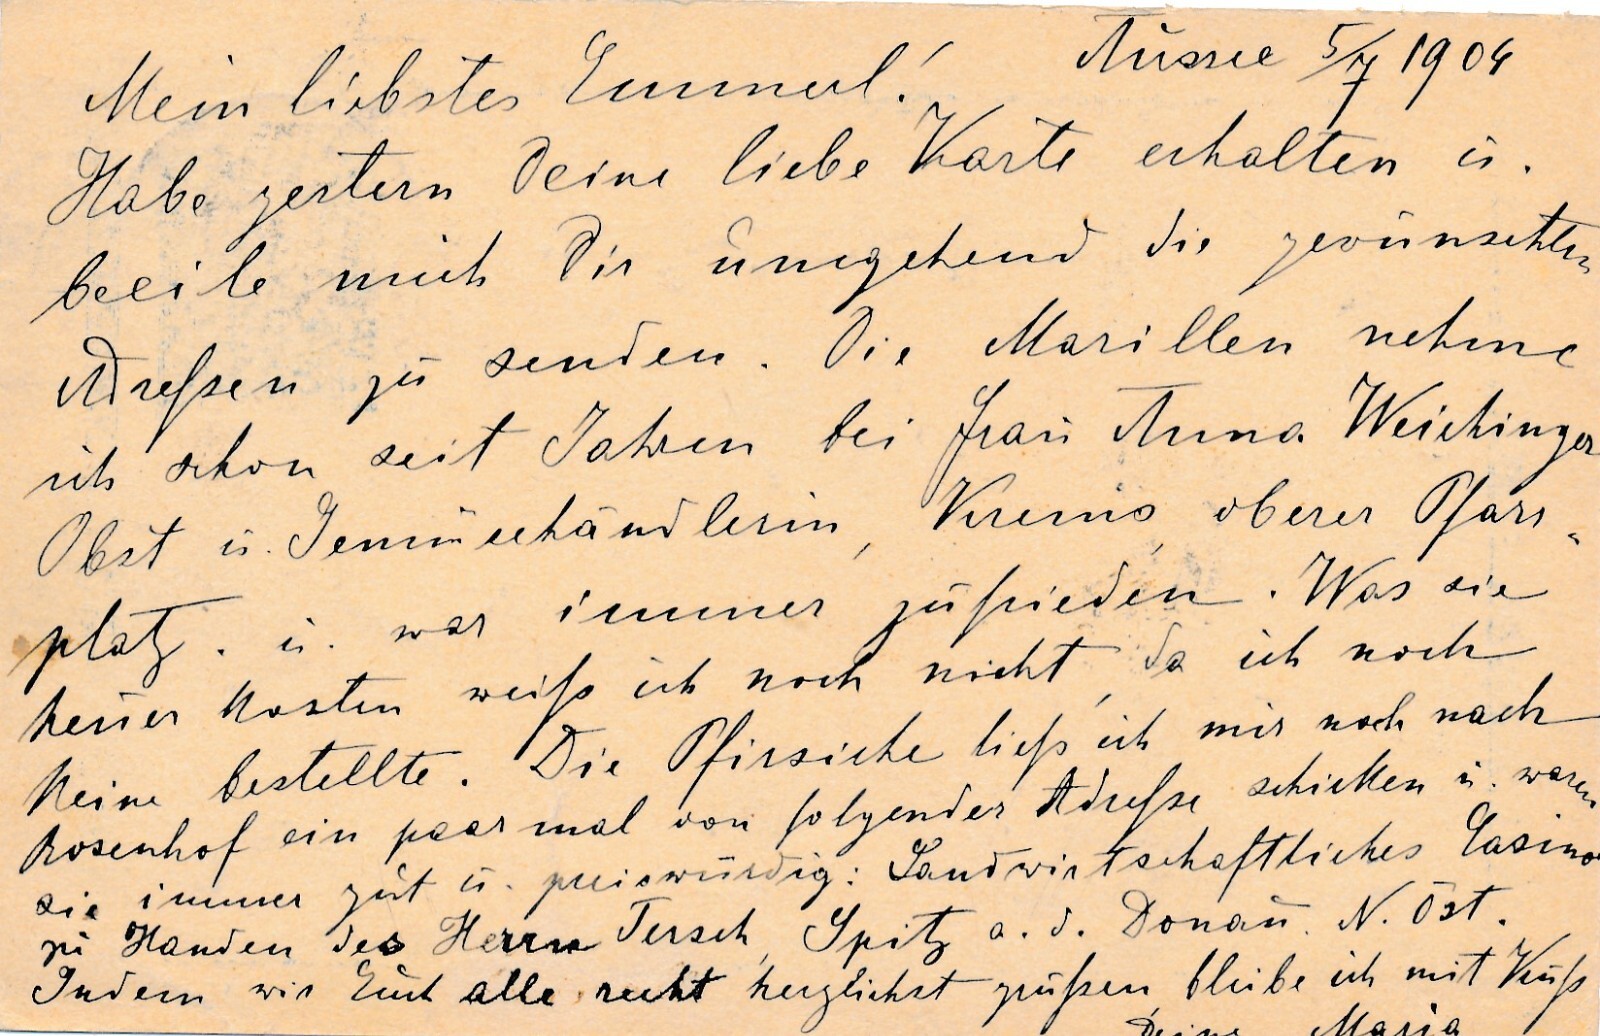 Aussee 5/7 1904
Mein liebstes Emmerl!
Habe gestern Deine liebe Karte erhalten u.
beeile mich Dir umgehend die gewünschten
Adreßen zu senden. Die Marillen nehme
ich schon seit Jahren bei Frau Anna Weichinger
Obst u. Gemüsehändlerin, Krems, oberer Pfarr„
platz. u. war immer zufrieden. Was sie
heuer kosten weiß ich noch nicht, da ich noch
keine bestellte. Die Pfirsiche ließ ich mir noch nach
Rosenhof ein paarmal von folgender Adreße schicken u. waren
sie immer gut u. preiswürdig: Landwirtschaftliches Casino
zu Handen des Herrn Tersch, Spitz a. d. Donau. N. Öst.
Indem wir Euch alle recht herzlichst grüßen bleibe ich mit Kuß
Deine Maria